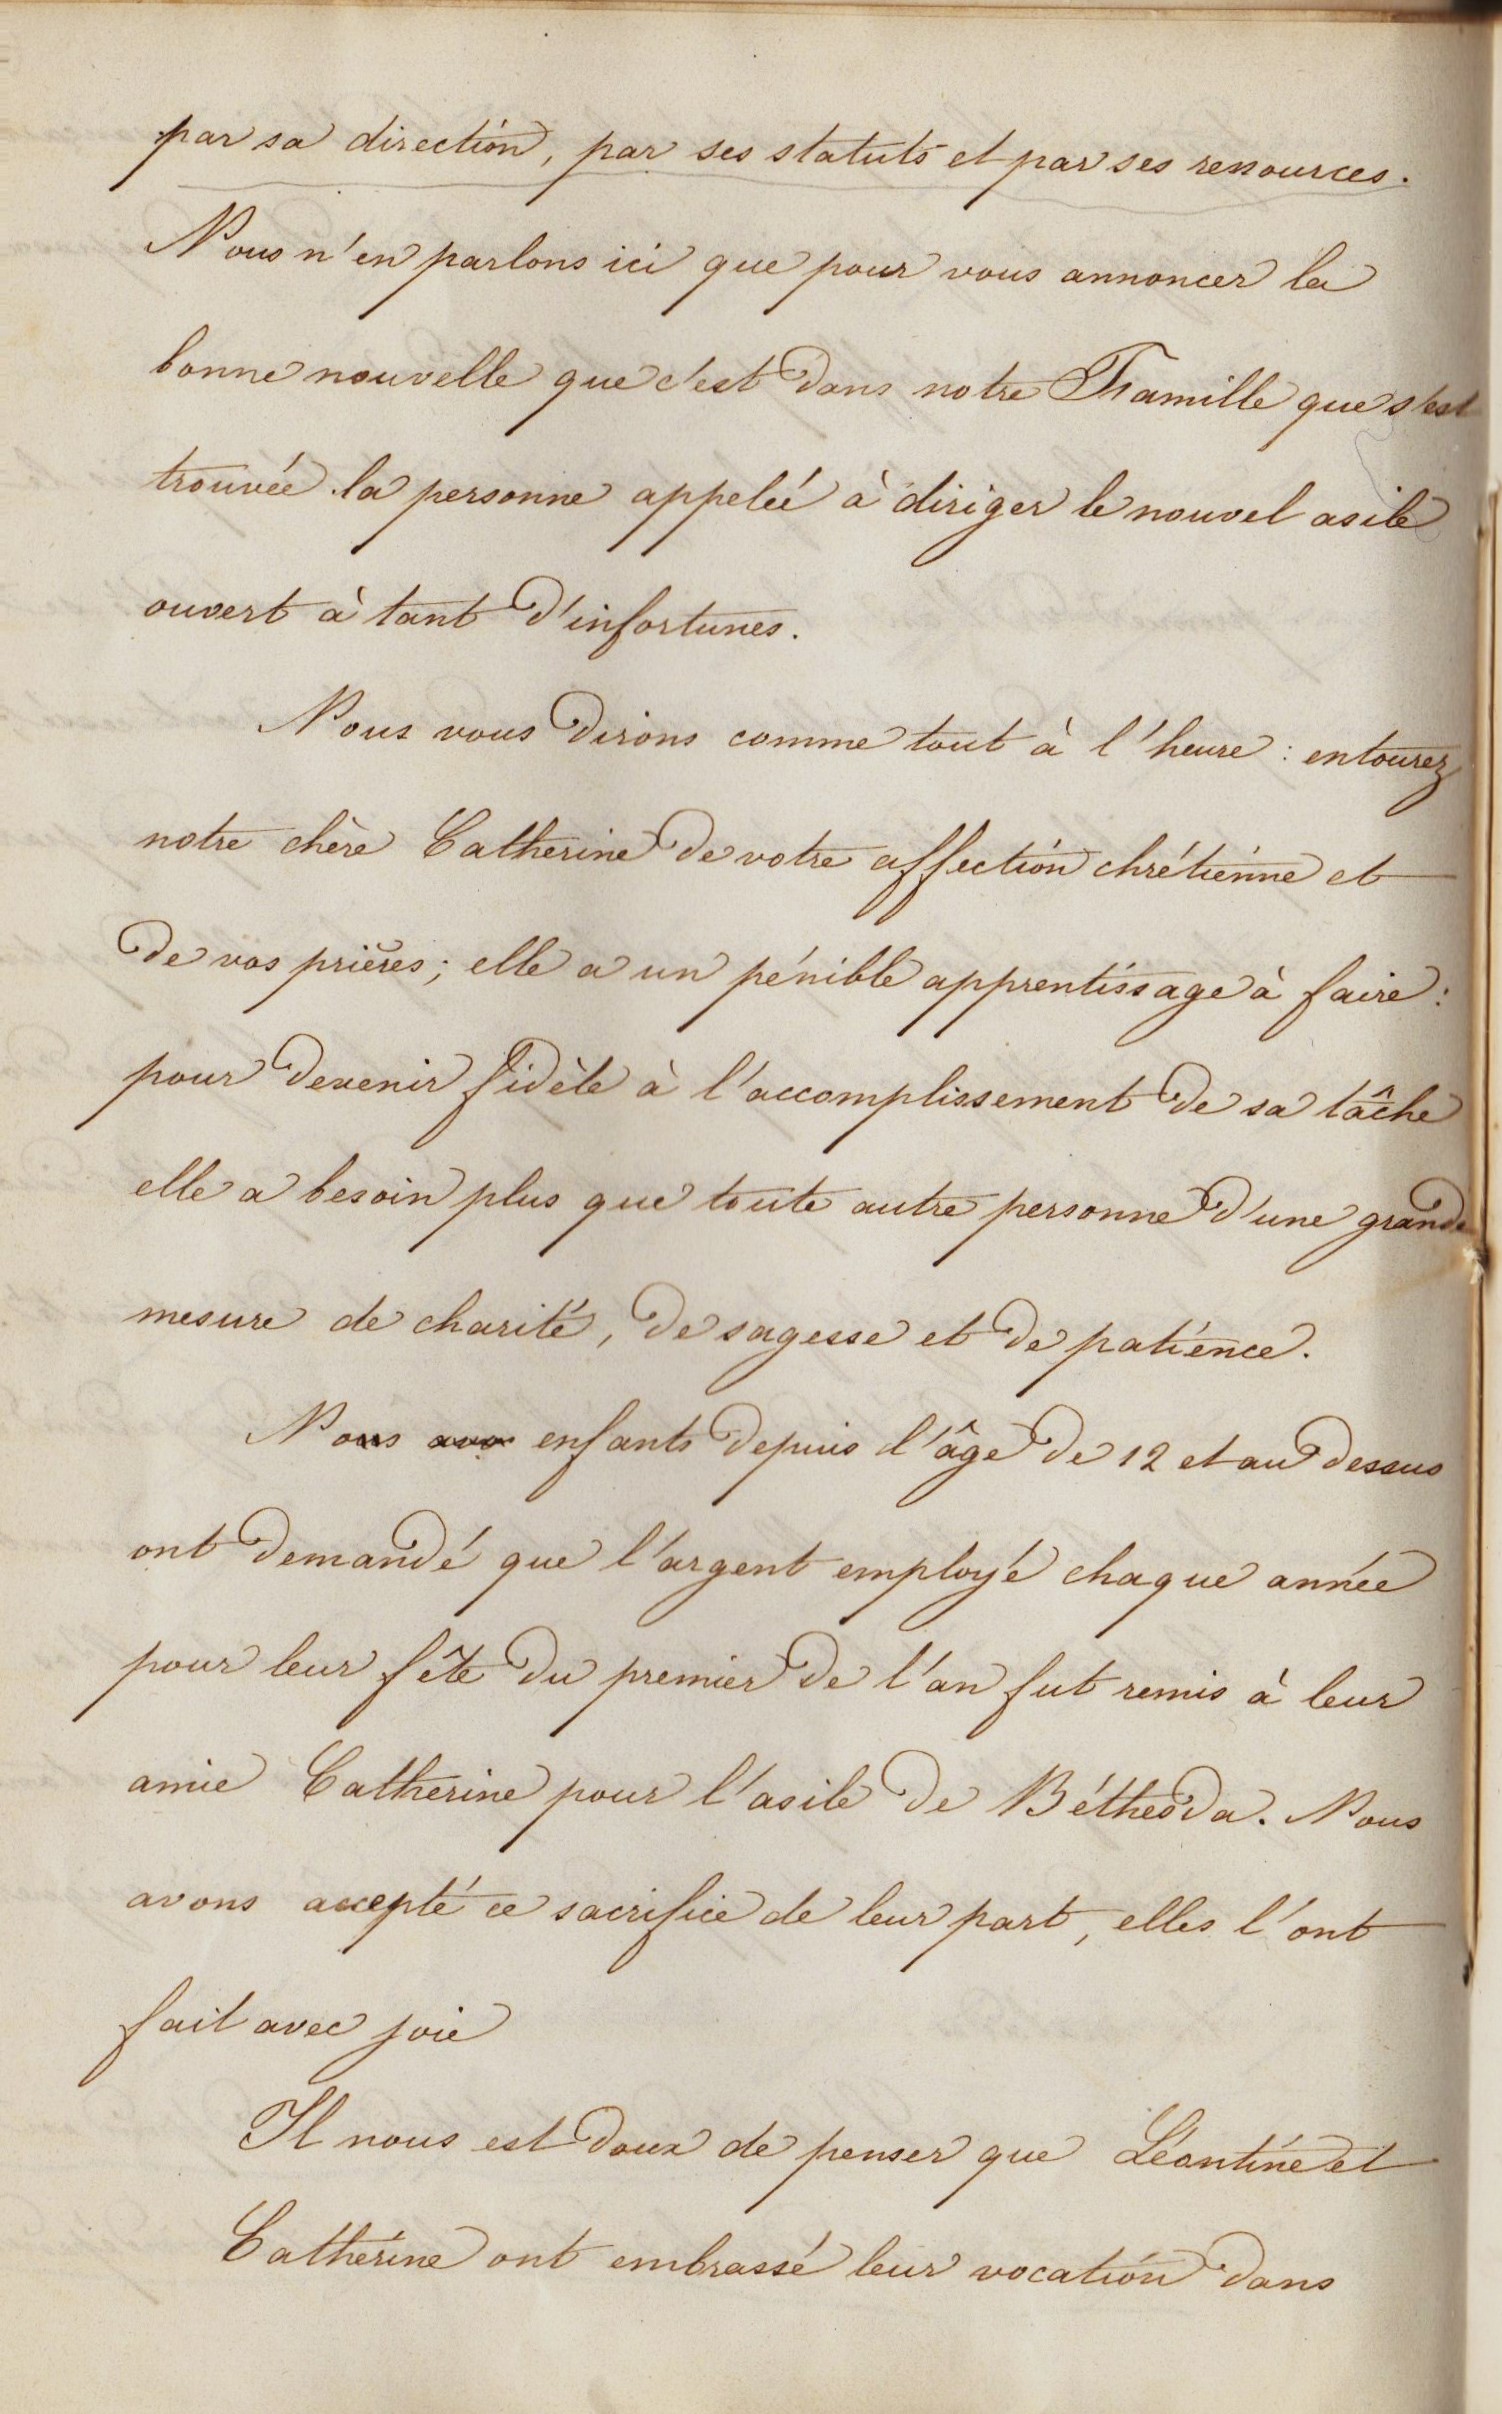 par sa direction, par ses statuts et par ses ressources.
Nous n'en parlons ici que pour vous annoncer la
bonne nouvelle que c'est dans notre Famille que s'est
trouvée la personne appelée à diriger le nouvel asile
ouvert à tant d'infortunes.
Nous vous dirons comme tout à l'heure : entourez
notre chère Catherine de votre affection chrétienne et
de vos prières ; elle a un pénible apprentissage à faire :
pour devenir fidèle à l'accomplissement de sa tâche
elle a besoin plus que toute autre personne d'une grande
mesure de charité, de sagesse et de patience.
Nous avo enfants depuis l'âge de 12 et au dessus
ont demandé que l'argent employé chaque année
pour leur fête du premier de l'an fut remis à leur
amie Catherine pour l'asile de Béthesda. Nous
avons accepté ce sacrifice de leur part, elles l'ont
fait avec joie
Il nous est doux de penser que Léontine et
Cathérine ont embrassé leur vocation dans